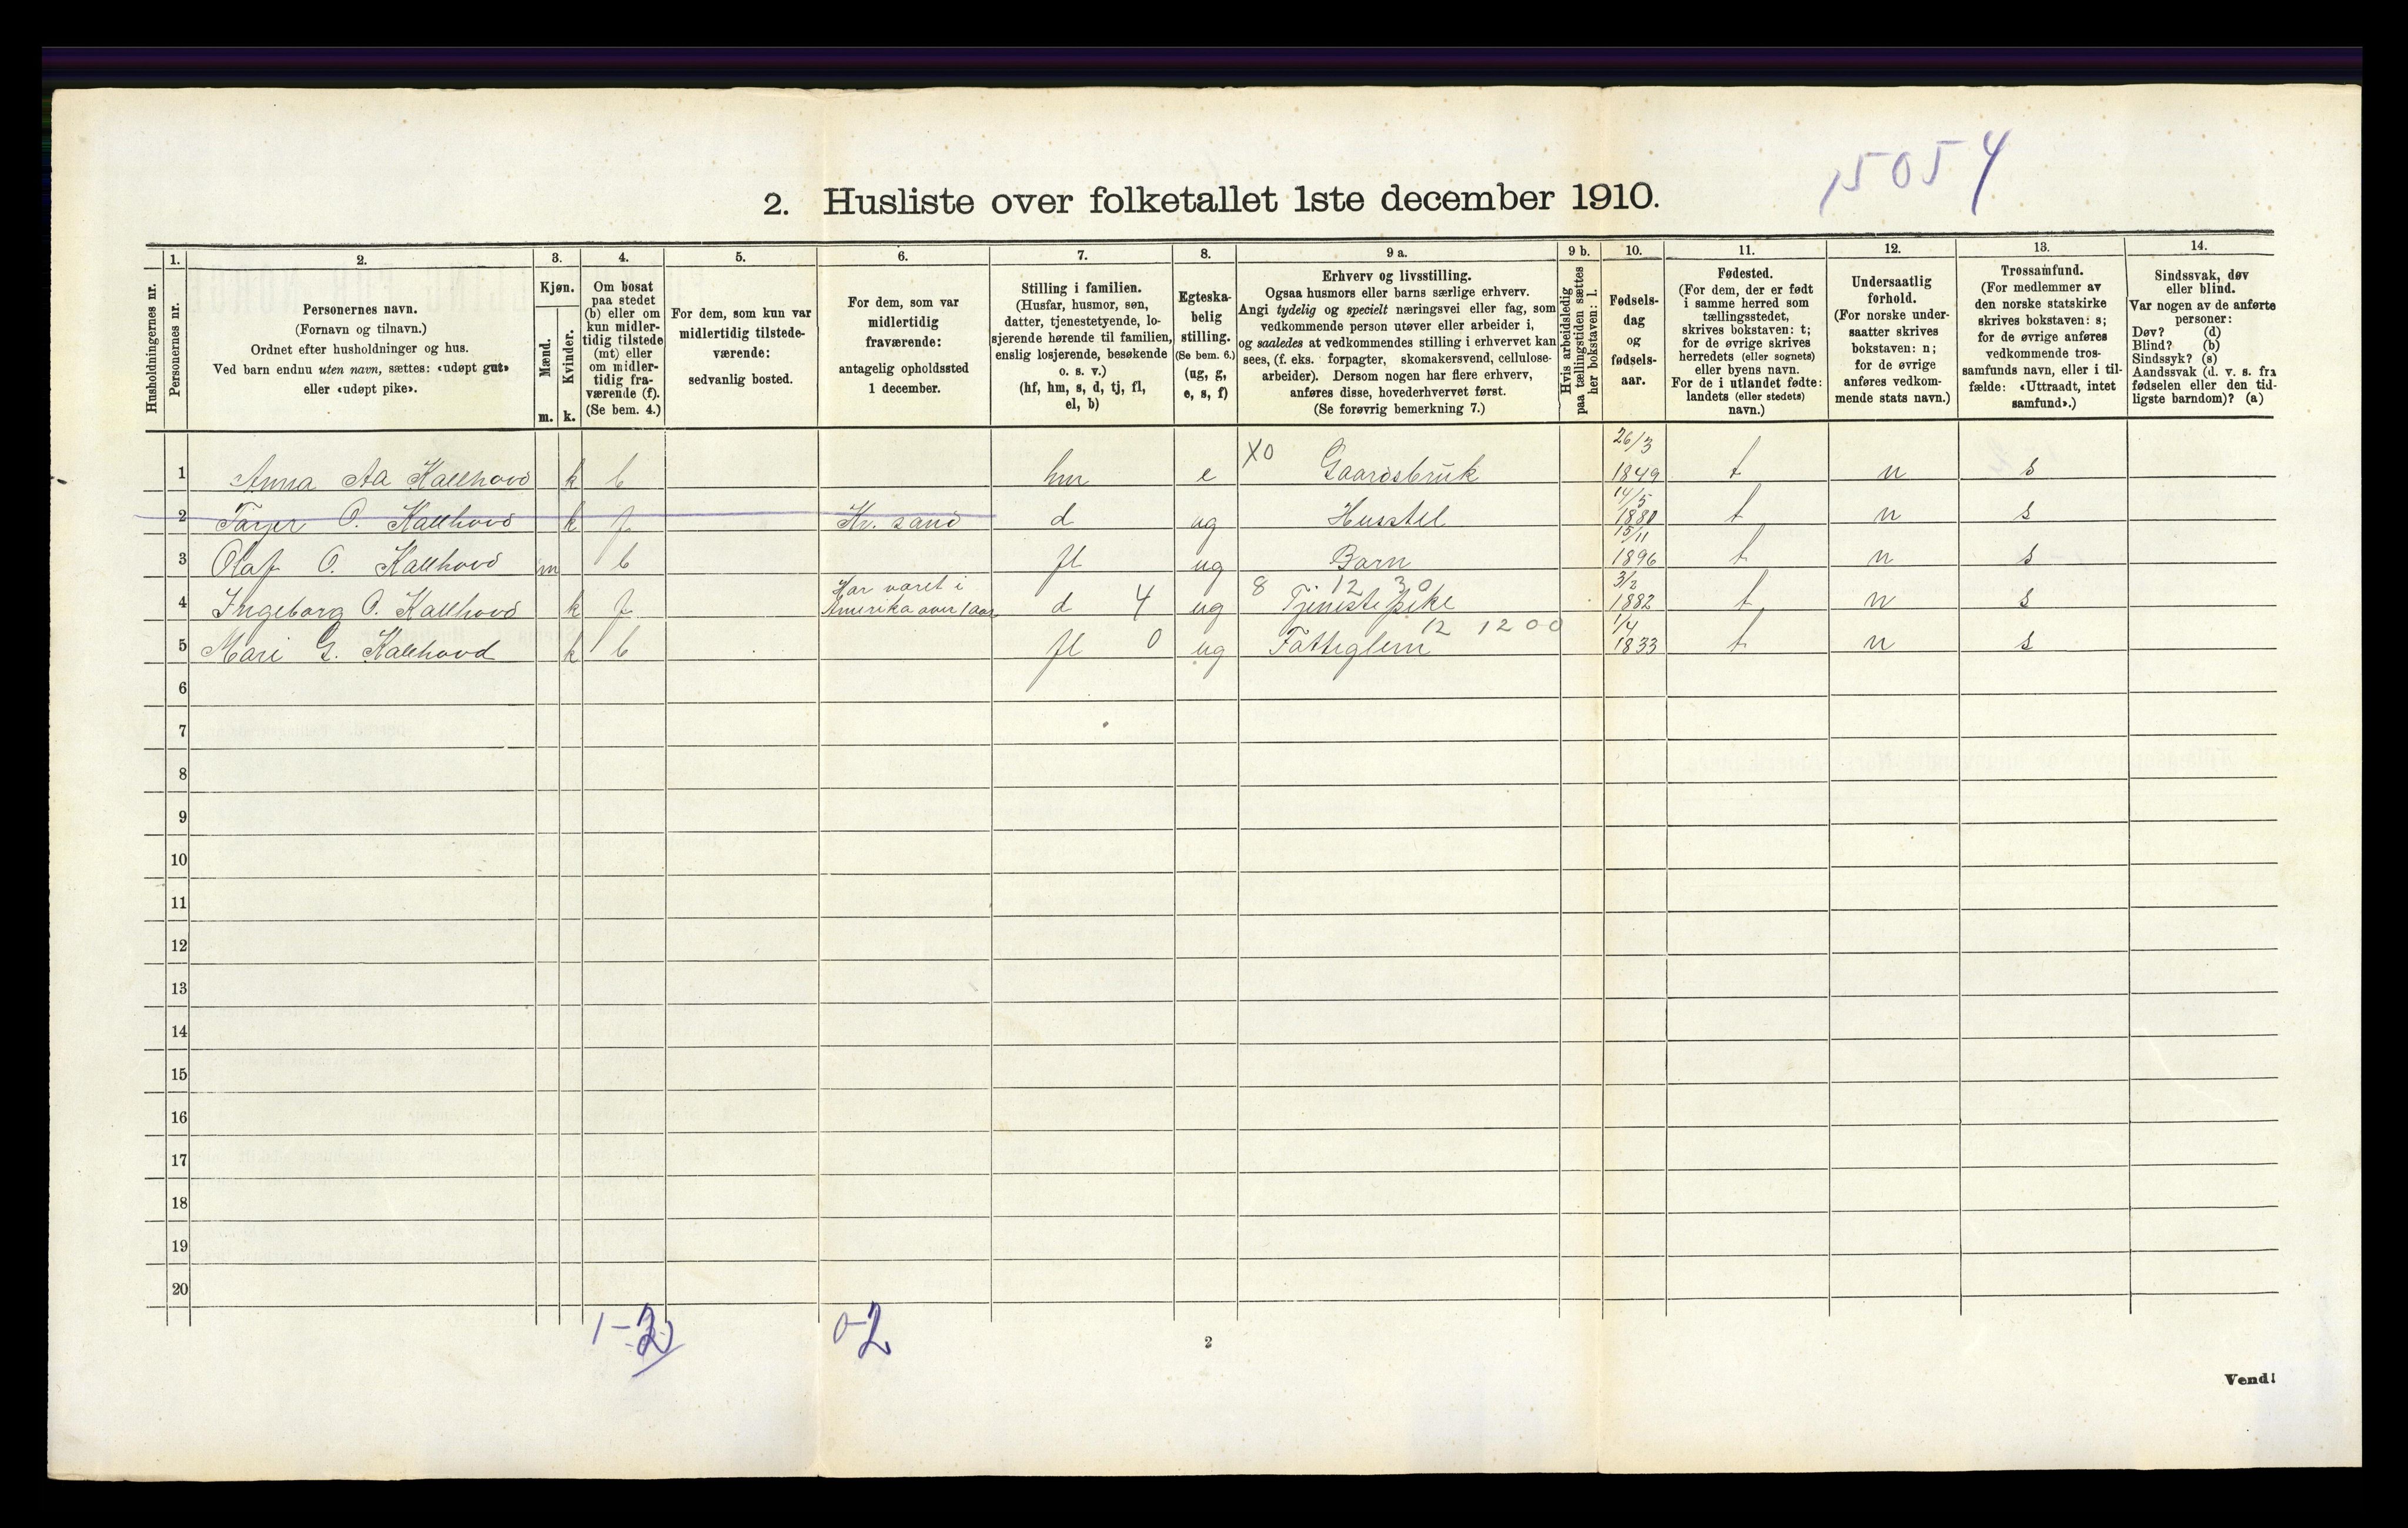 15054
2. Husliste over folketallet 1ste december 1910.
Husholdningernes nr.
1. Personernes nr.
2. Personernes navn.
(Fornavn og tilnavn.)
Ordnet efter husholdninger og hus.
Ved barn endnu uten navn, sættes: «udøpt gut»
eller «udøpt pike».
3. Kjøn.
Mænd. m.
Kvinder. k.
4. Om bosat
paa stedet
(b) eller om
kun midler-
tidig tilstede
(mt) eller
om midler-
tidig fra-
værende (f).
(Se bem. 4.)
5. For dem, som kun var
midlertidig tilstede-
værende:
sedvanlig bosted.
6. For dem, som var
midlertidig
fraværende:
antagelig opholdssted
1 december.
7. Stilling i familien.
(Husfar, husmor, søn,
datter, tjenestetyende, lo-
sjerende hørende til familien,
enslig losjerende, besøkende
o. s. v.)
(hf, hm, s, d, tj, fl,
el, b)
8. Egteska-
belig
stilling.
(Se bem. 6.)
(ug, g,
e, s, f)
9 a. Erhverv og livsstilling.
Ogsaa husmors eller barns særlige erhverv.
Angi tydelig og specielt næringsvei eller fag, som
vedkommende person utøver eller arbeider i,
og saaledes at vedkommendes stilling i erhvervet kan
sees, (f. eks. forpagter, skomakersvend, cellulose-
arbeider). Dersom nogen har flere erhverv,
anføres disse, hovederhvervet først.
(Se forøvrig bemerkning 7.)
9 b. Hvis arbeidsledig
paa tællingstiden sættes
her bokstaven: l.
10. Fødsels-
dag
og
fødsels-
aar.
11. Fødested.
(For dem, der er født
i samme herred som
tællingsstedet,
skrives bokstaven: t;
for de øvrige skrives
herredets (eller sognets)
eller byens navn.
For de i utlandet fødte:
landets (eller stedets)
navn.)
12. Undersaatlig
forhold.
(For norske under-
saatter skrives
bokstaven: n;
for de øvrige
anføres vedkom-
mende stats navn.)
13. Trossamfund.
(For medlemmer av
den norske statskirke
skrives bokstaven: s;
for de øvrige anføres
vedkommende tros-
samfunds navn, eller i til-
fælde: «Uttraadt, intet
samfund».)
14. Sindssvak, døv
eller blind.
Var nogen av de anførte
personer:
Døv? (d)
Blind? (b)
Sindssyk? (s)
Aandssvak (d. v. s. fra
fødselen eller den tid-
ligste barndom)? (a)
1 Anna Aa Kallhovd k b hm e X0 Gaardsbruk 26/3 1849 t n s
2 O. Kallhovd k f Kr. sand d ug Husstel 14/5 1880 t n s
3 Olaf O. Kallhovd m b fl ug Barn 15/11 1896 t n s
4 Ingeborg O. Kallhovd k f Har været i Amerika over 1 aar d 4 ug 8 12 30 Tjenestepike 3/2 1882 t n s
5 Mari G. Kallhovd k b fl 0 ug Fattiglem 12 1200 1/4 1833 t n s
6
7
8
9
10
11
12
13
14
15
16
17
18
19
20
0-2
2
Vend!